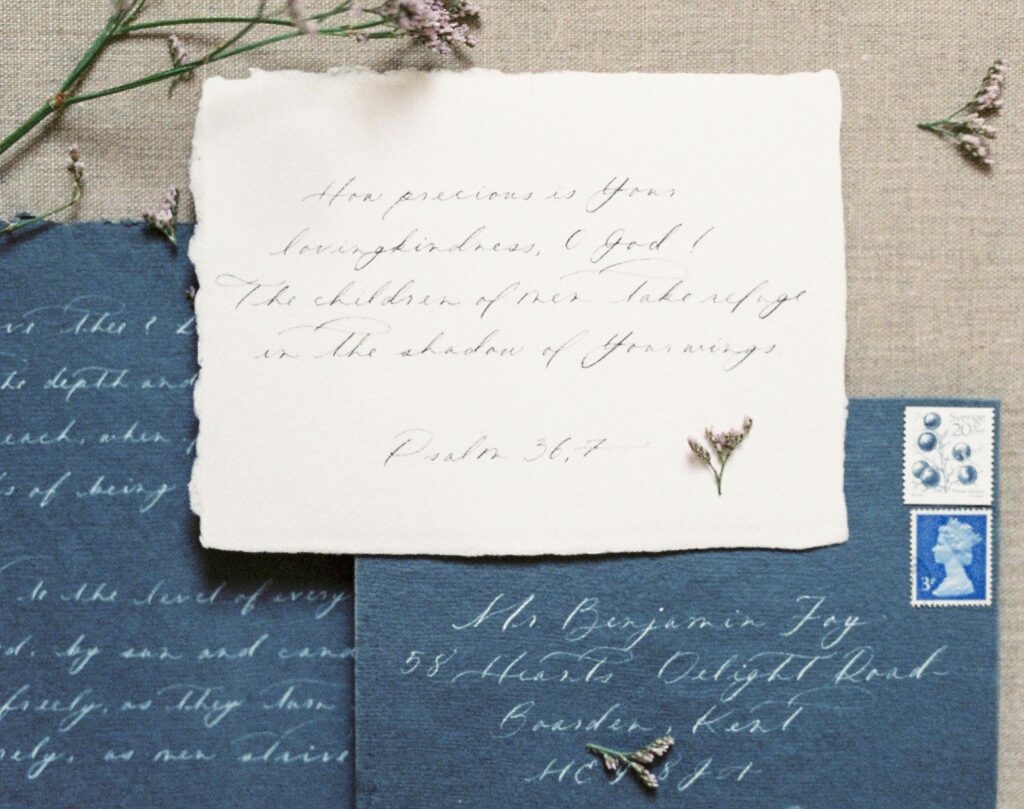 How precious is Your
lovingkindness, O God!
The children of men take refuge
in the shadow of Your wings
Psalm 36,7
ve thee? L
he depth and
each, when
s of being
to the level of every
d, by sun and cand
freely, as they turn
rely, as men strive
Sverige
20
3P
Mr Benjamin Foy
58 Hearts Delight Road
Boarden, Kent